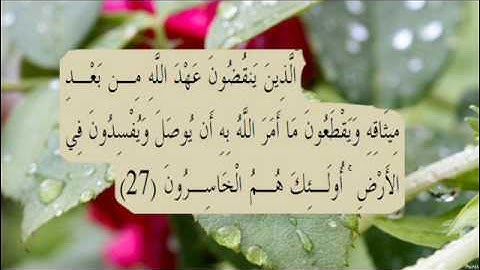 الَّذِينَ يَنقُضُونَ عَهْدَ اللَّهِ مِـن بَعْـدِ
مِيثَاقِهِ وَيَقْطَعُونَ مَا أَمَرَ اللَّهُ بِهِ أَن يُوصَلَ وَيُفْسِدُونَ فِي
الأَرْضِ ۚ أُولَـئِكَ هُـمُ الْخَاسِـرُونَ (27)